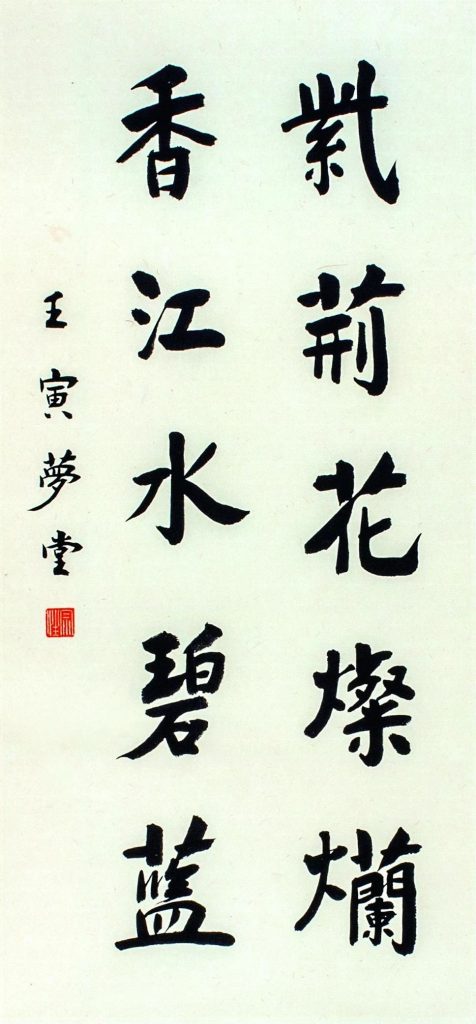 紫荊花燦爛
香江水碧藍
壬寅夢堂